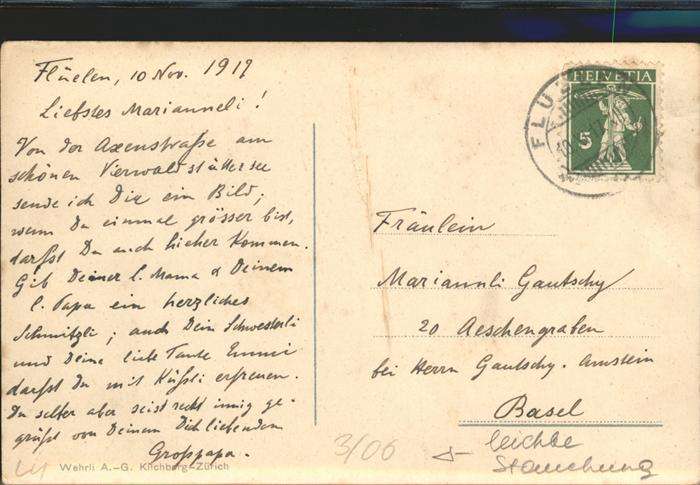 Flüelen, 10 Nov. 1917
Liebstes Marianneli!
Von der Axenstraße am
schönen Vierwaldstättersee
sende ich Dir ein Bild;
wenn Du einmal grösser bist,
darfst Du auch hieher kommen.
Gib Deiner l. Mama & Deinem
l. Papa ein herzliches
Schmützli; auch Dein Schwesterli
und Deine liebe Tante Emmi
darfst Du mit Küßli erfreuen.
Du selber aber seist recht innig ge-
grüßt von Deinem Dich liebenden
Großpapa.
Wehrli A.-G. Kilchberg-Zürich
HELVETIA
5
FLÜ
Fräulein
Mariannli Gautschy
20 Aeschengraben
bei Herrn Gautschy-Amstein
Basel
3/06
leichte
Stauchung